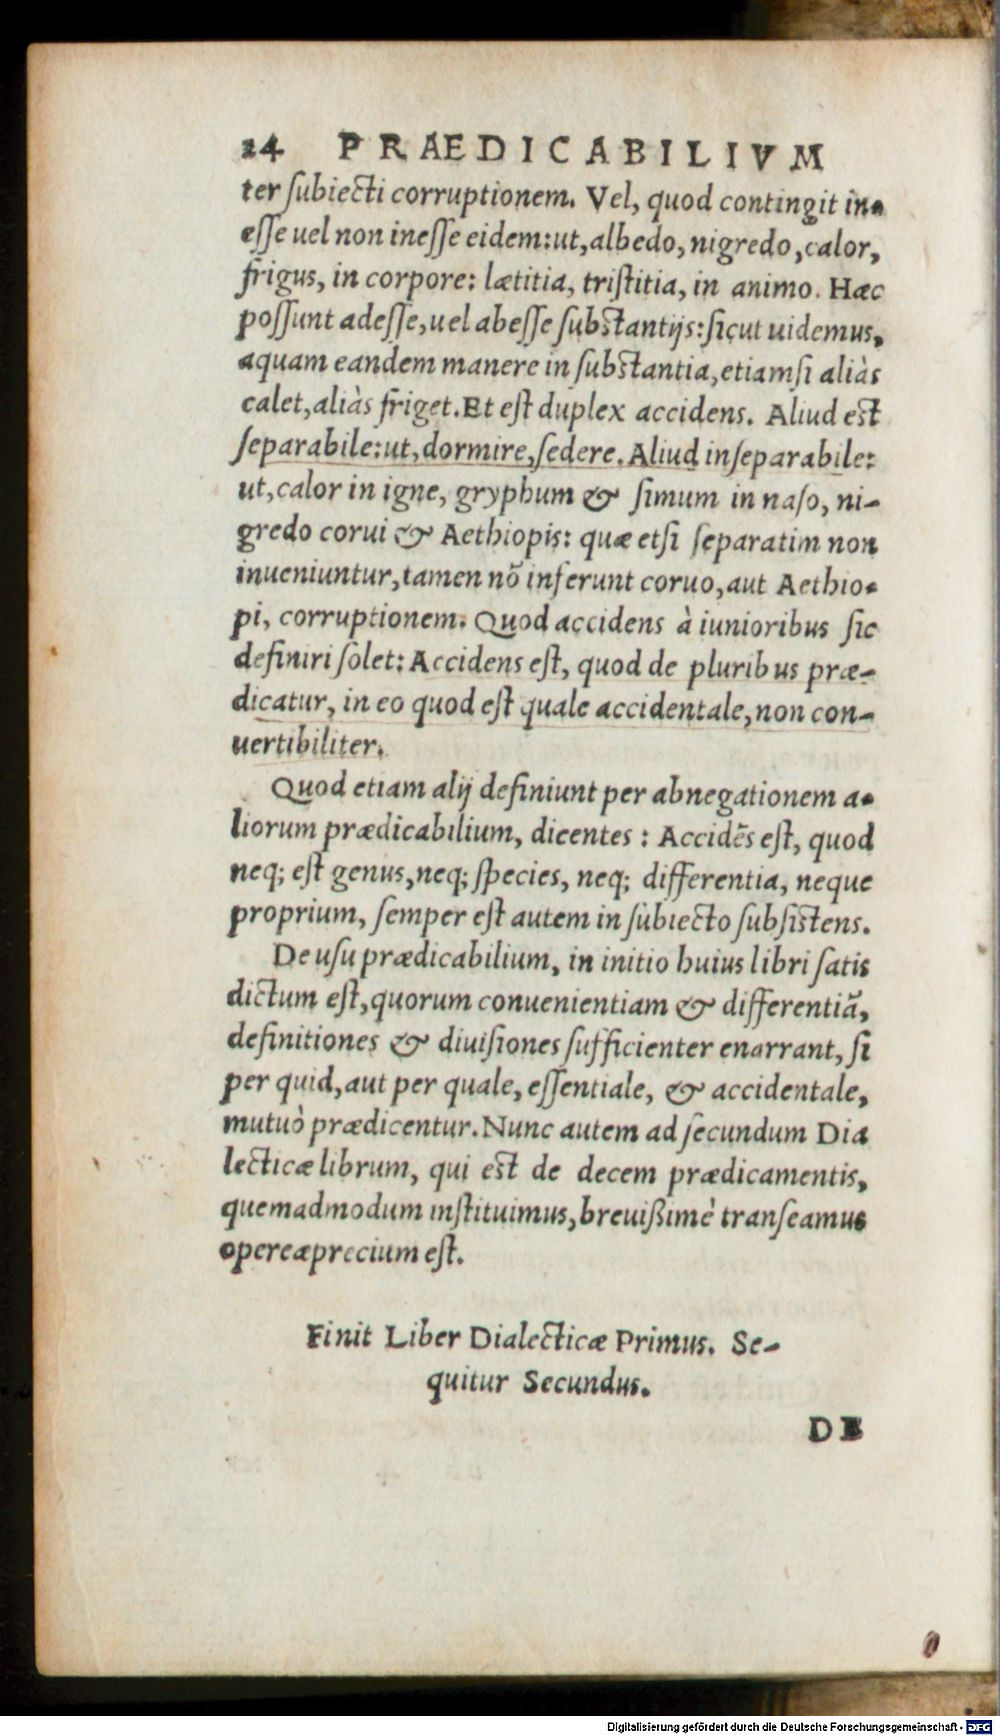 24 PRAEDICABILIVM
ter ſubiecti corruptionem. Vel, quod contingit in-
eſſe uel non ineſſe eidem: ut, albedo, nigredo, calor,
frigus, in corpore: lætitia, triſtitia, in animo. Hæc
poſſunt adeſſe, uel abeſſe ſubſtantijs: ſicut uidemus,
aquam eandem manere in ſubſtantia, etiamſi aliàs
calet, aliàs friget. Et eſt duplex accidens. Aliud eſt
ſeparabile: ut, dormire, ſedere. Aliud inſeparabile:
ut, calor in igne, gryphum & ſimum in naſo, ni-
gredo corui & Aethiopis: quæ etſi ſeparatim non
inueniuntur, tamen nō inferunt coruo, aut Aethio-
pi, corruptionem. Quod accidens à iunioribus ſic
definiri ſolet: Accidens eſt, quod de pluribus præ-
dicatur, in eo quod eſt quale accidentale, non con-
uertibiliter.
Quod etiam alij definiunt per abnegationem a-
liorum prædicabilium, dicentes: Accidēs eſt, quod
neq; eſt genus, neq; ſpecies, neq; differentia, neque
proprium, ſemper eſt autem in ſubiecto ſubſiſtens.
De uſu prædicabilium, in initio huius libri ſatis
dictum eſt, quorum conuenientiam & differentiā,
definitiones & diuiſiones ſufficienter enarrant, ſi
per quid, aut per quale, eſſentiale, & accidentale,
mutuò prædicentur. Nunc autem ad ſecundum Dia
lecticæ librum, qui eſt de decem prædicamentis,
quemadmodum inſtituimus, breuißimè tranſeamus
operæprecium eſt.
Finit Liber Dialecticæ Primus. Se-
quitur Secundus.
DE
Digitalisierung gefördert durch die Deutsche Forschungsgemeinschaft - DFG